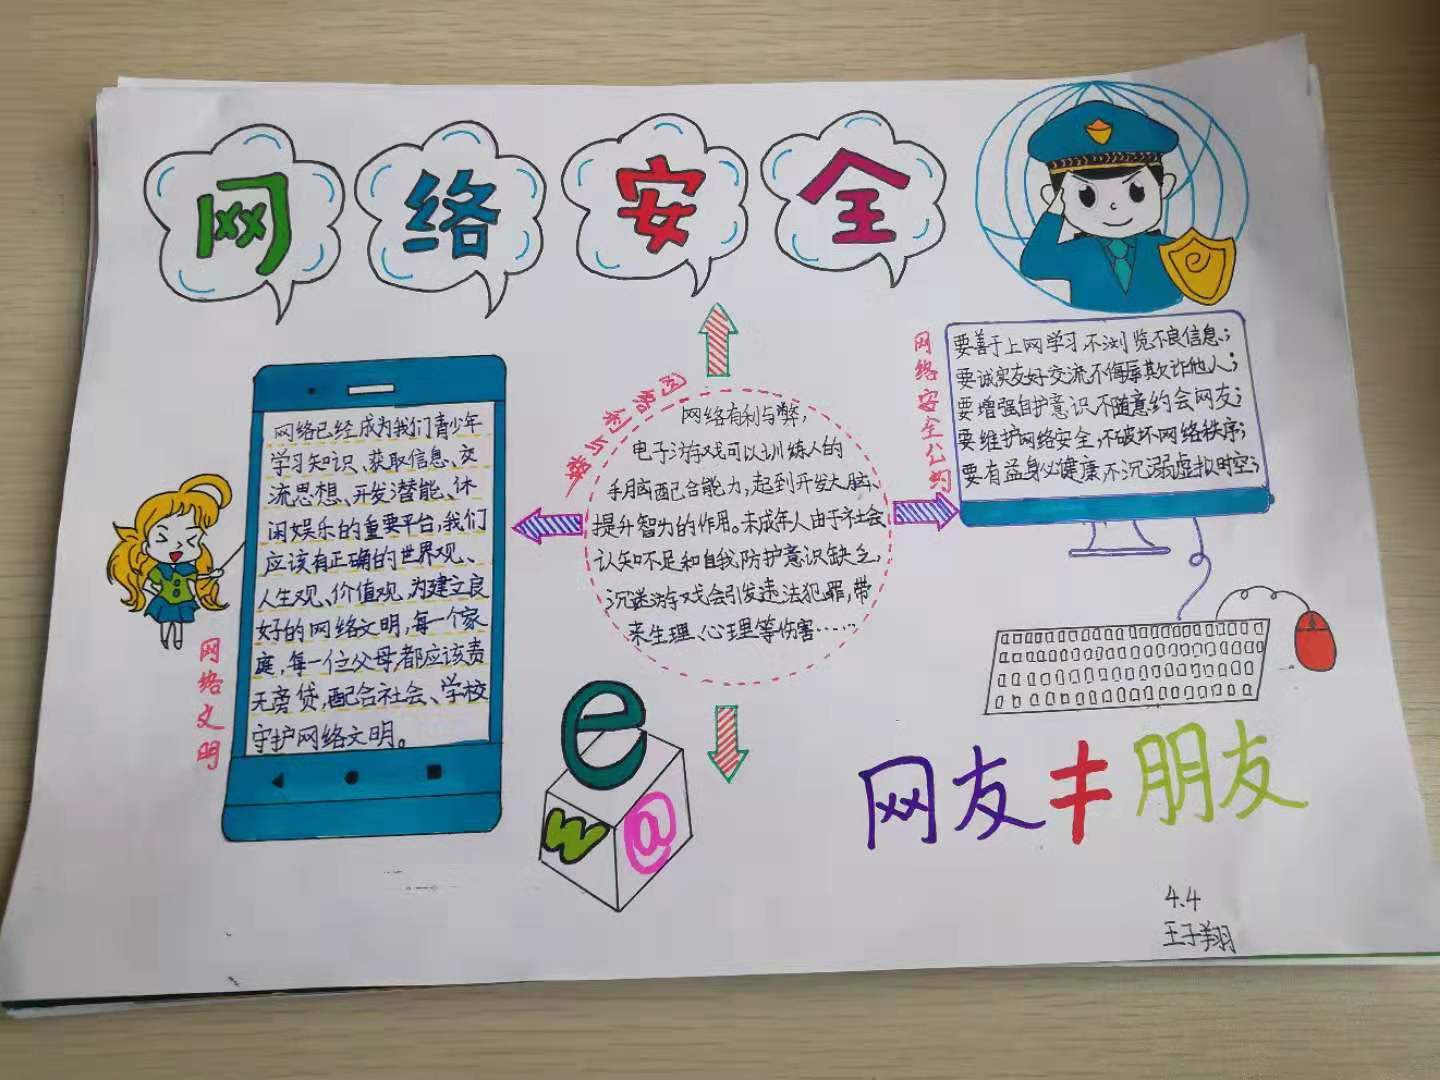 网络安全
网络文明
网络已经成为我们青少年
学习知识、获取信息、交
流思想、开发潜能、休
闲娱乐的重要平台,我们
应该有正确的世界观、
人生观、价值观,为建立良
好的网络文明,每一个家
庭,每一位父母,都应该责
无旁贷,配合社会、学校
守护网络文明。
网络利与弊
网络有利与弊,
电子游戏可以训练人的
手脑配合能力,起到开发大脑、
提升智力的作用。未成年人由于社会
认知不足和自我防护意识缺乏,
沉迷游戏会引发违法犯罪,带
来生理、心理等伤害……
网络安全公约
要善于上网学习,不浏览不良信息;
要诚实友好交流,不侮辱欺诈他人;
要增强自护意识,不随意约会网友;
要维护网络安全,不破坏网络秩序;
要有益身心健康,不沉溺虚拟时空;
e
w @
网友≠朋友
4.4
王子翔